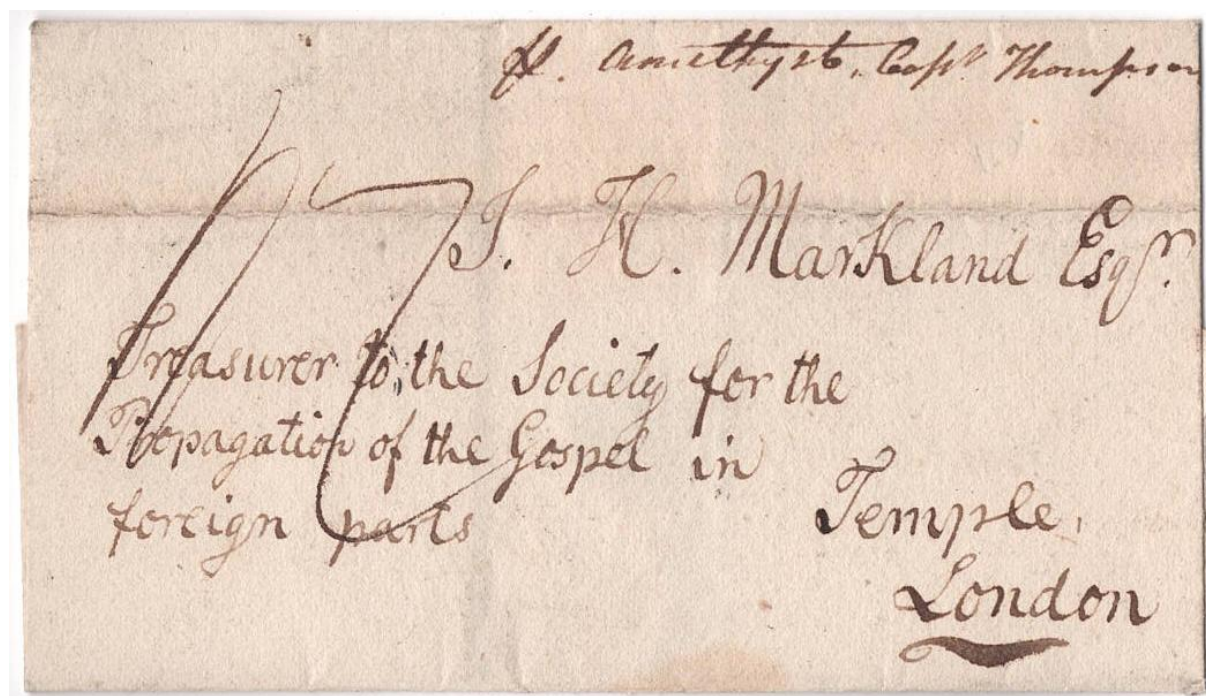 p. Amethyst, Capt Thompson
J. H. Markland Esqr.
Treasurer to the Society for the
Propagation of the Gospel in
foreign parts
Temple,
London